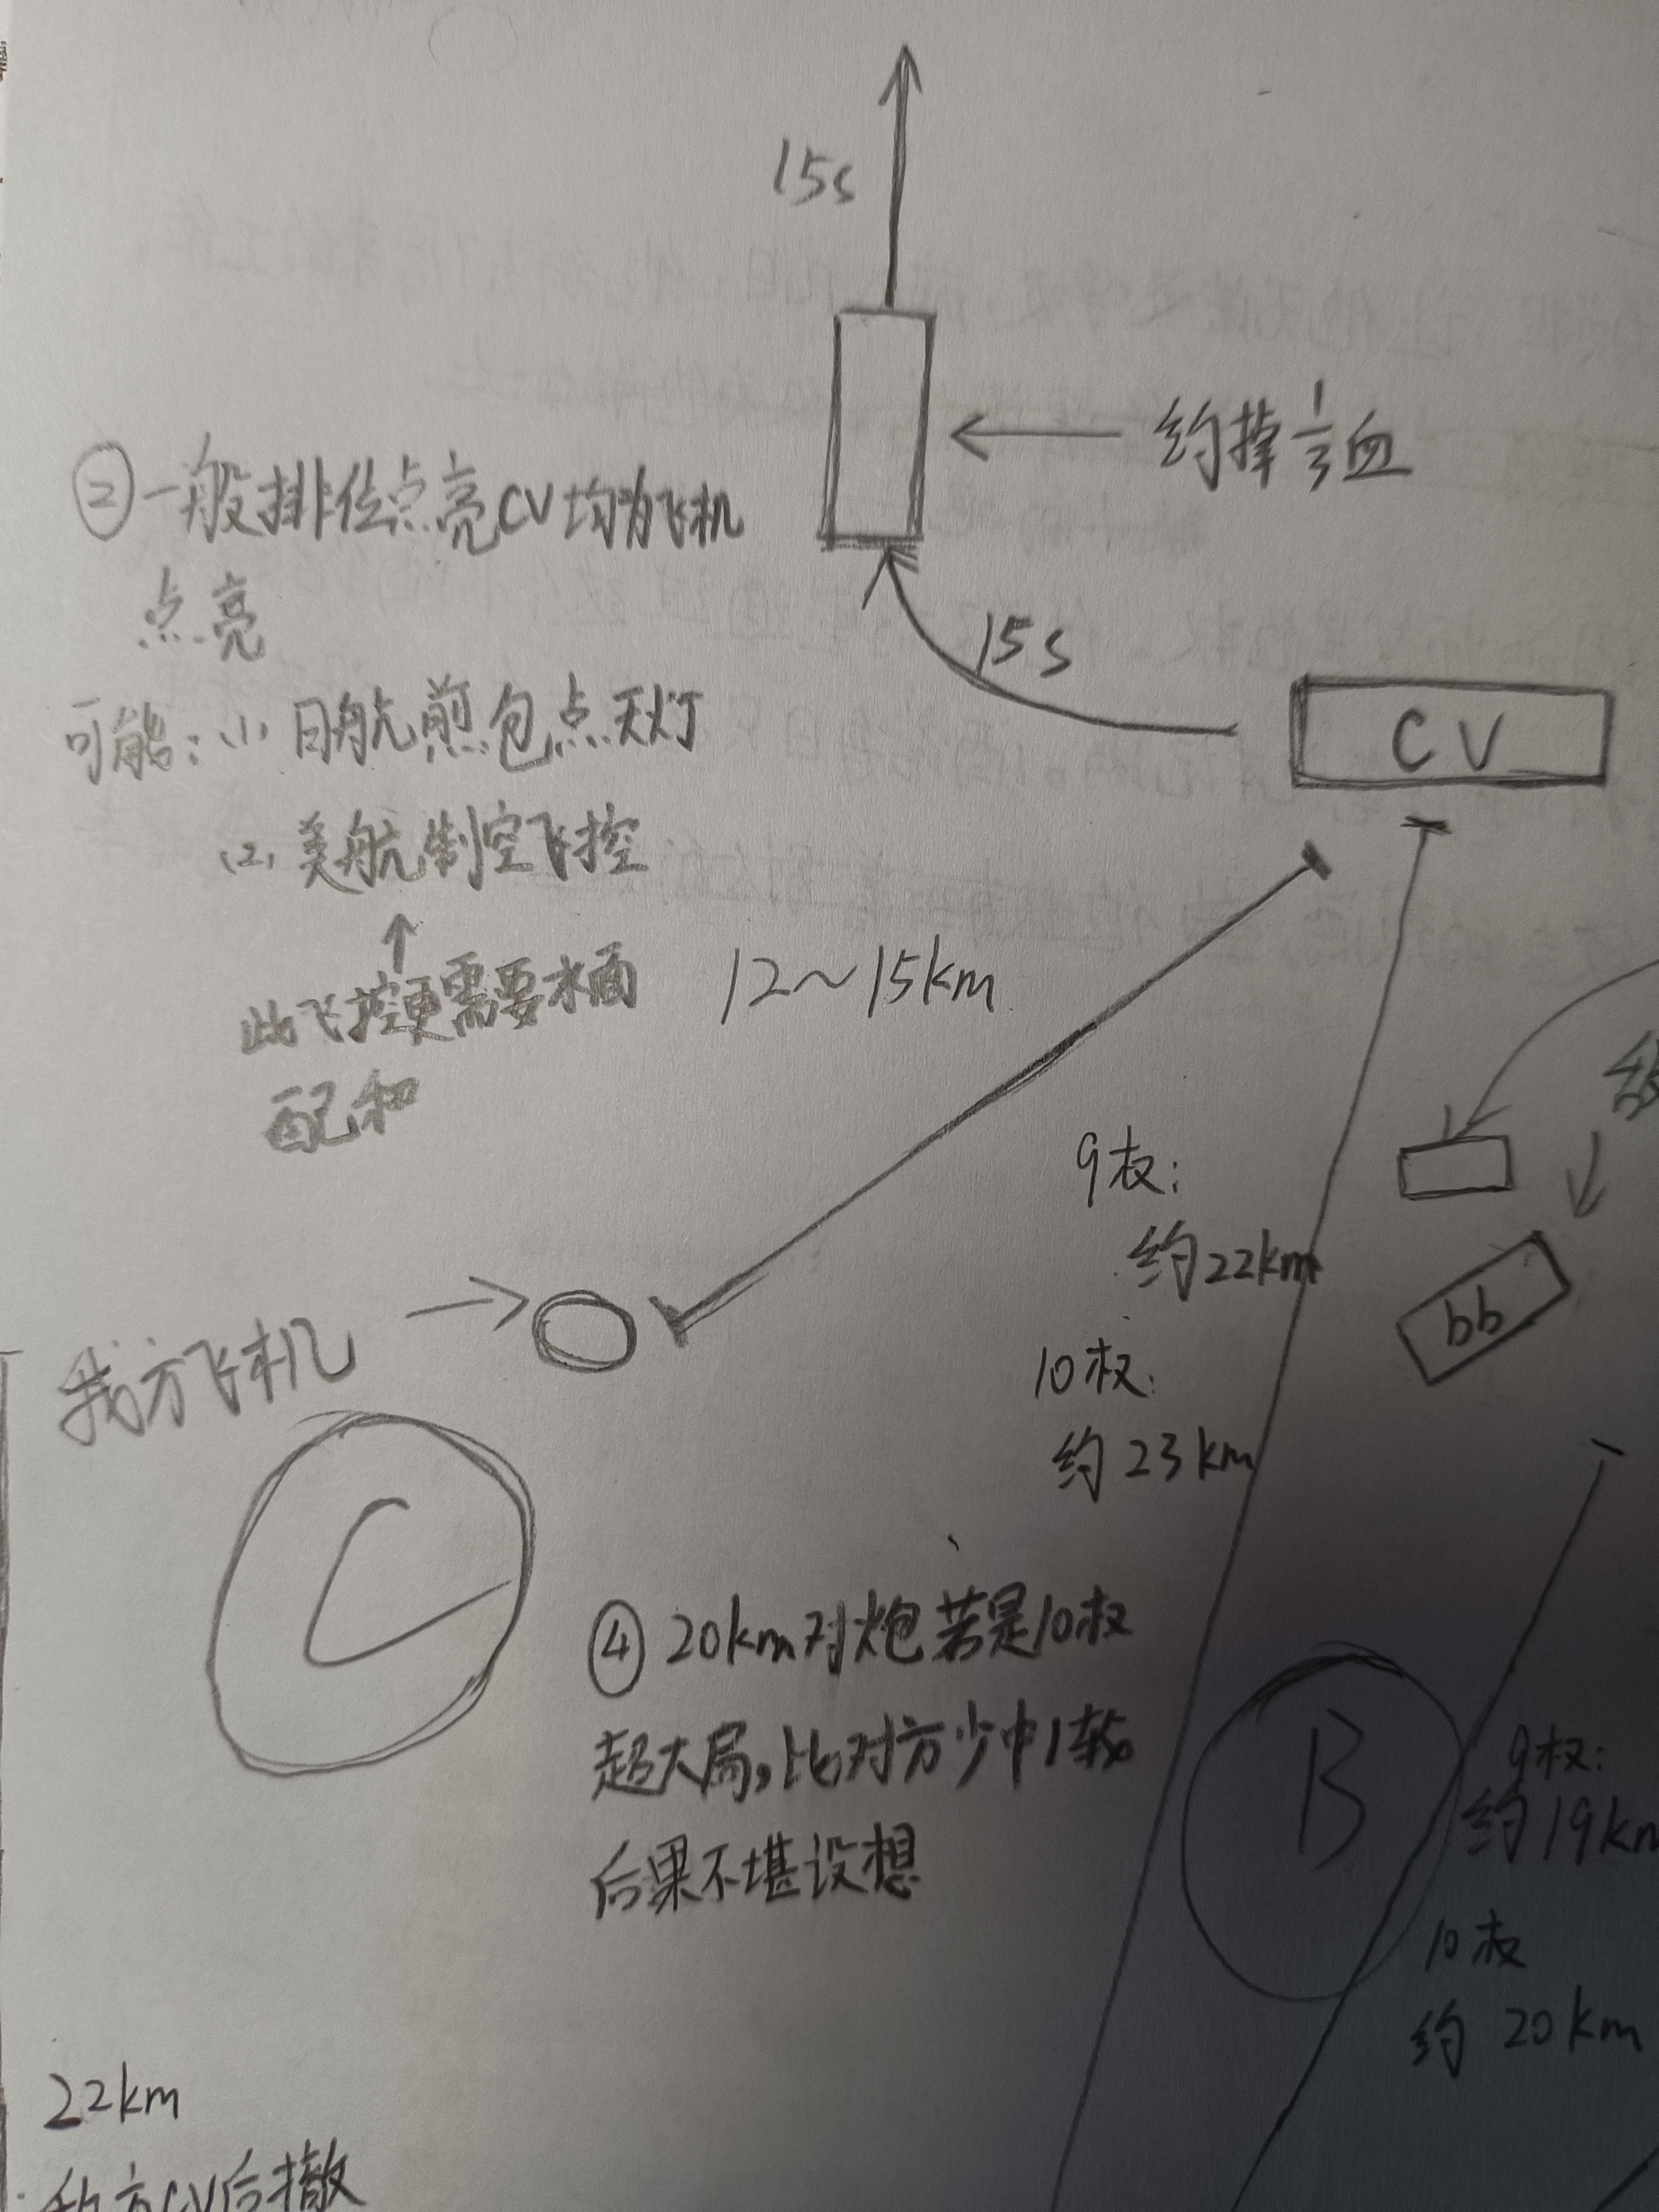 15s
约掉1/3血
②一般排位点亮CV均为飞机
点亮
15s
可能：(1) 日航煎包点天灯
CV
(2) 美航制空飞控
↑
此飞控更需要水面
配和
12～15km
9权：
约22km
bb
10权：
约23km
我方飞机
C
④ 20km对炮若是10权
超大局，比对方少中1轮
后果不堪设想
B
9权：
约19km
10权
约20km
22km
CV后撤